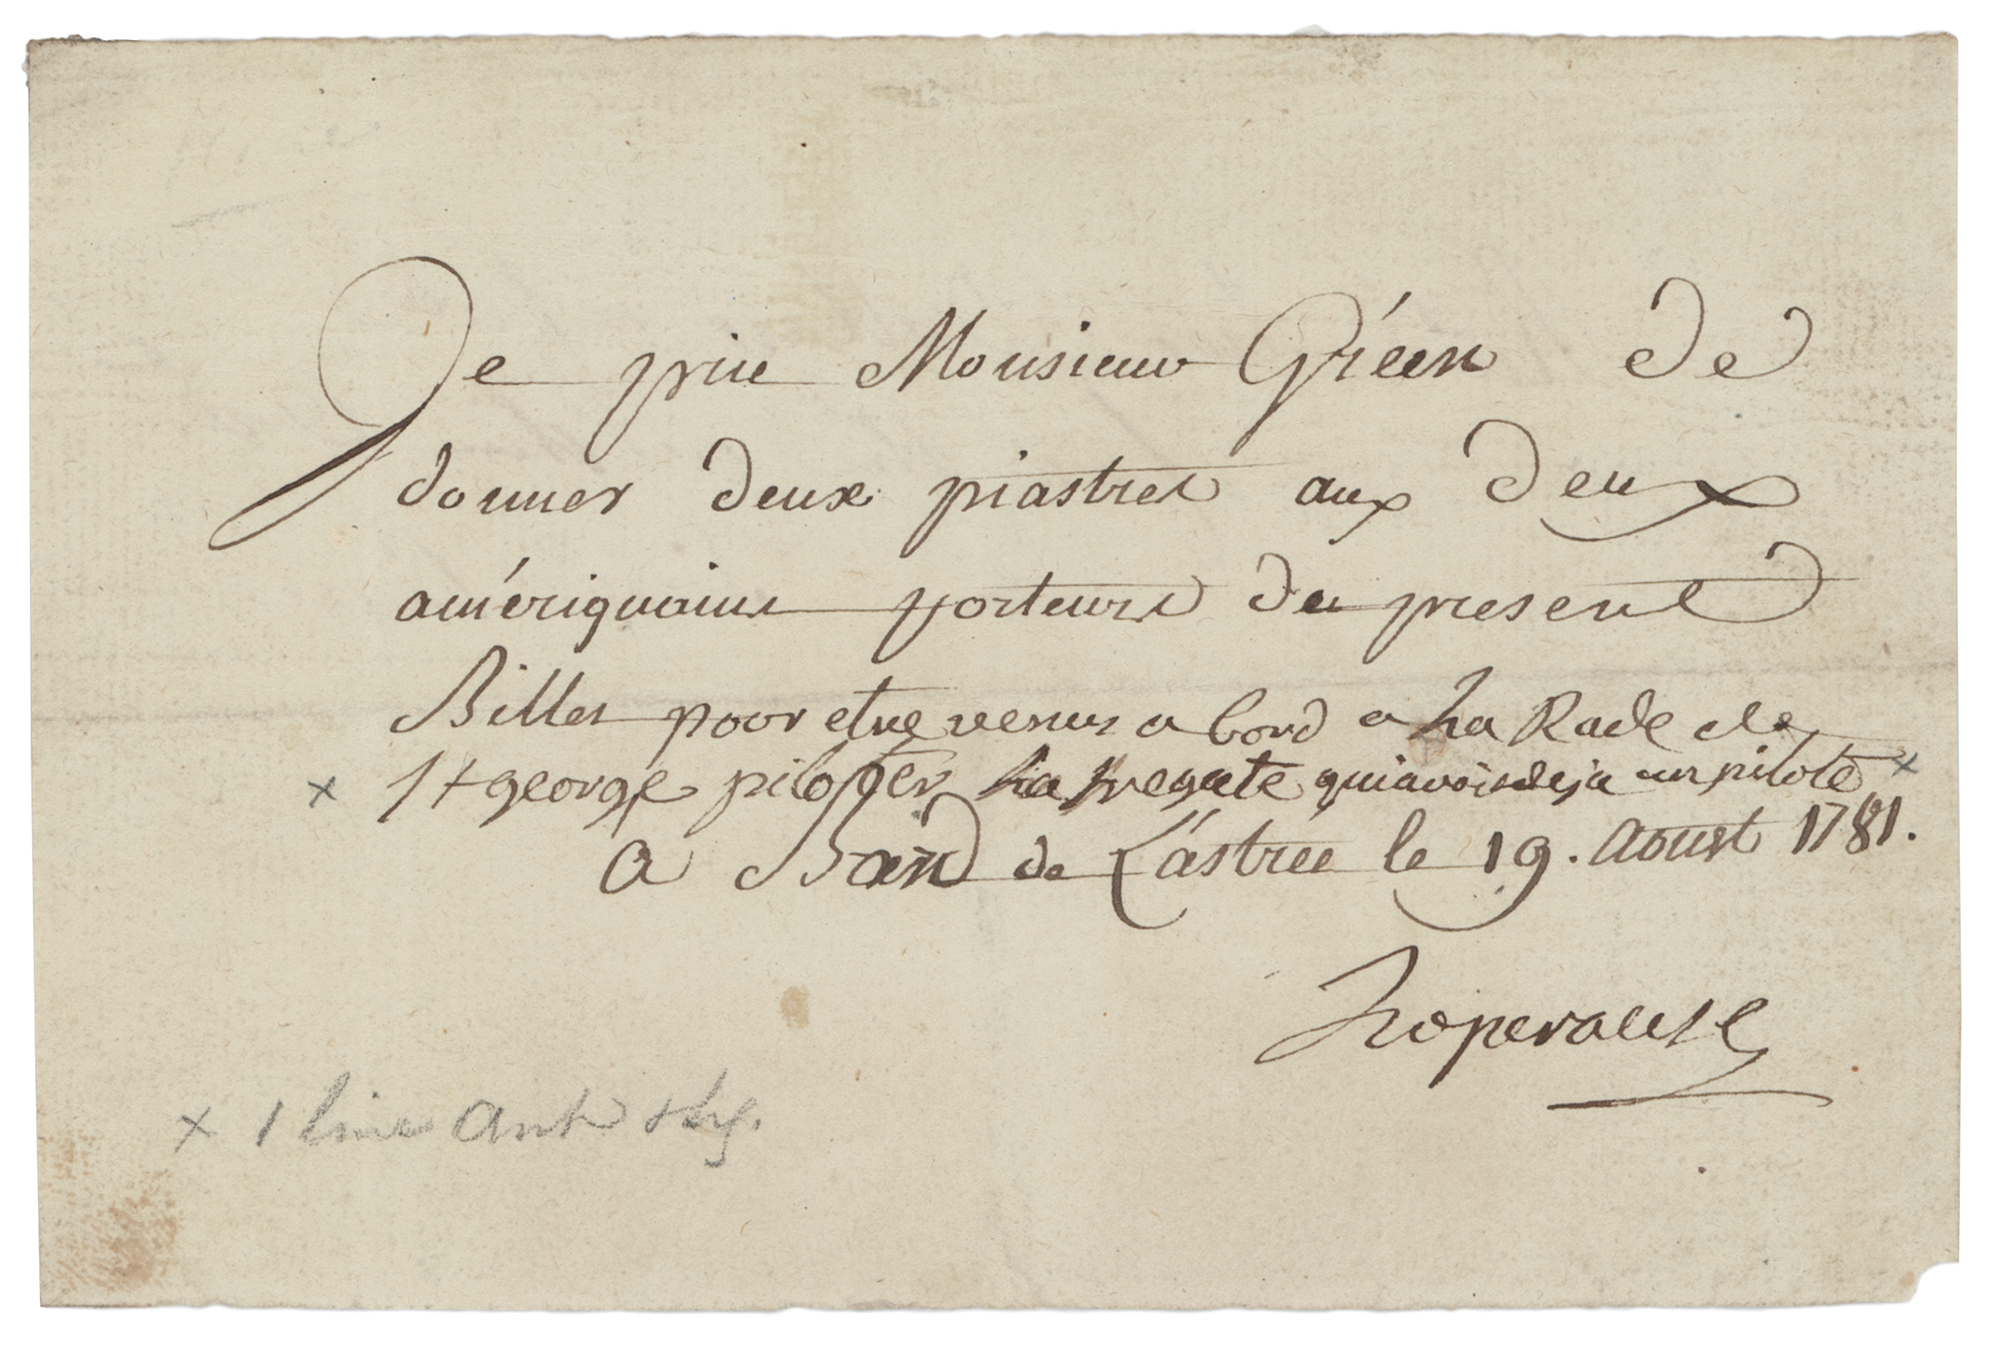 Je prie Monsieur Gréen de
donner deux piastres aux deux
amériquains porteurs du present
Billet pour etre venus a bord a La Rade de
x St george piloter La fregate qui avoit deja un pilote x
A Bord de L'astrée le 19. Aoust 1781.
Laperouse
x 1 line